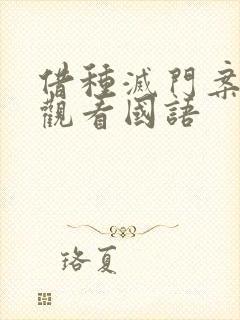 借種滅門案
觀看國語
珞夏